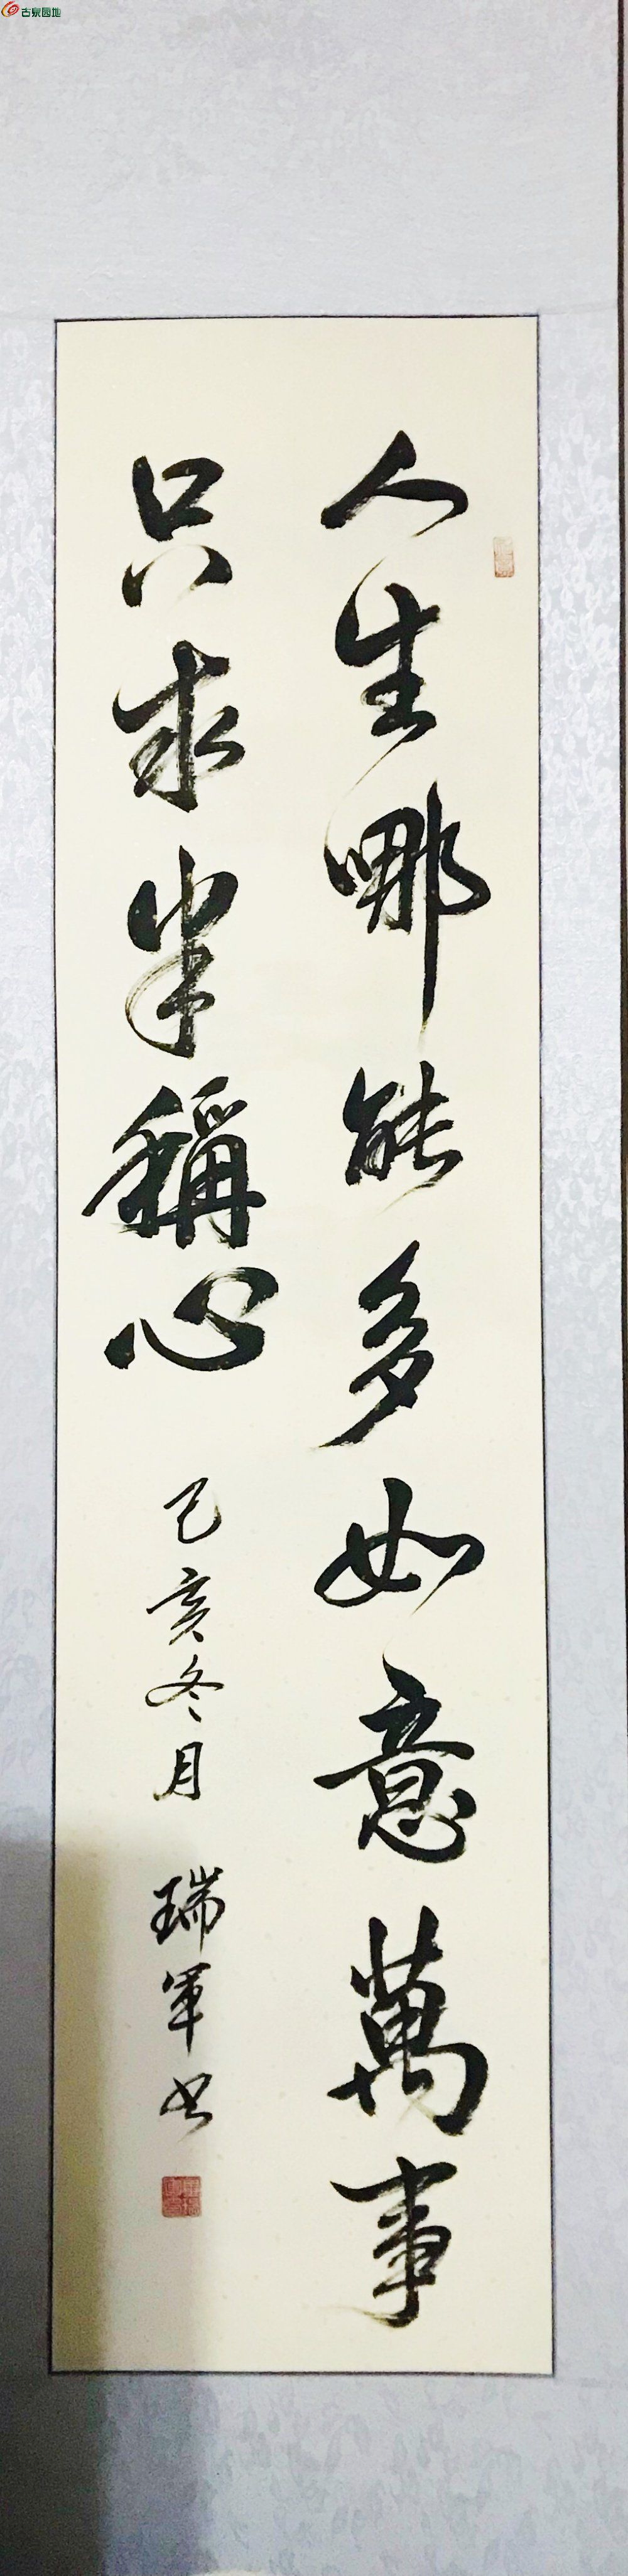 古泉园地
人生哪能多如意萬事
只求半稱心
己亥冬月 瑞軍书